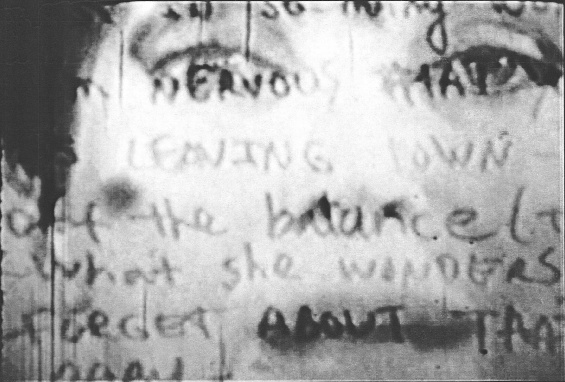 in so many
NERVOUS THAT
LEAVING TOWN -
of the balance (
what she WONDERS
FORGET ABOUT THAT